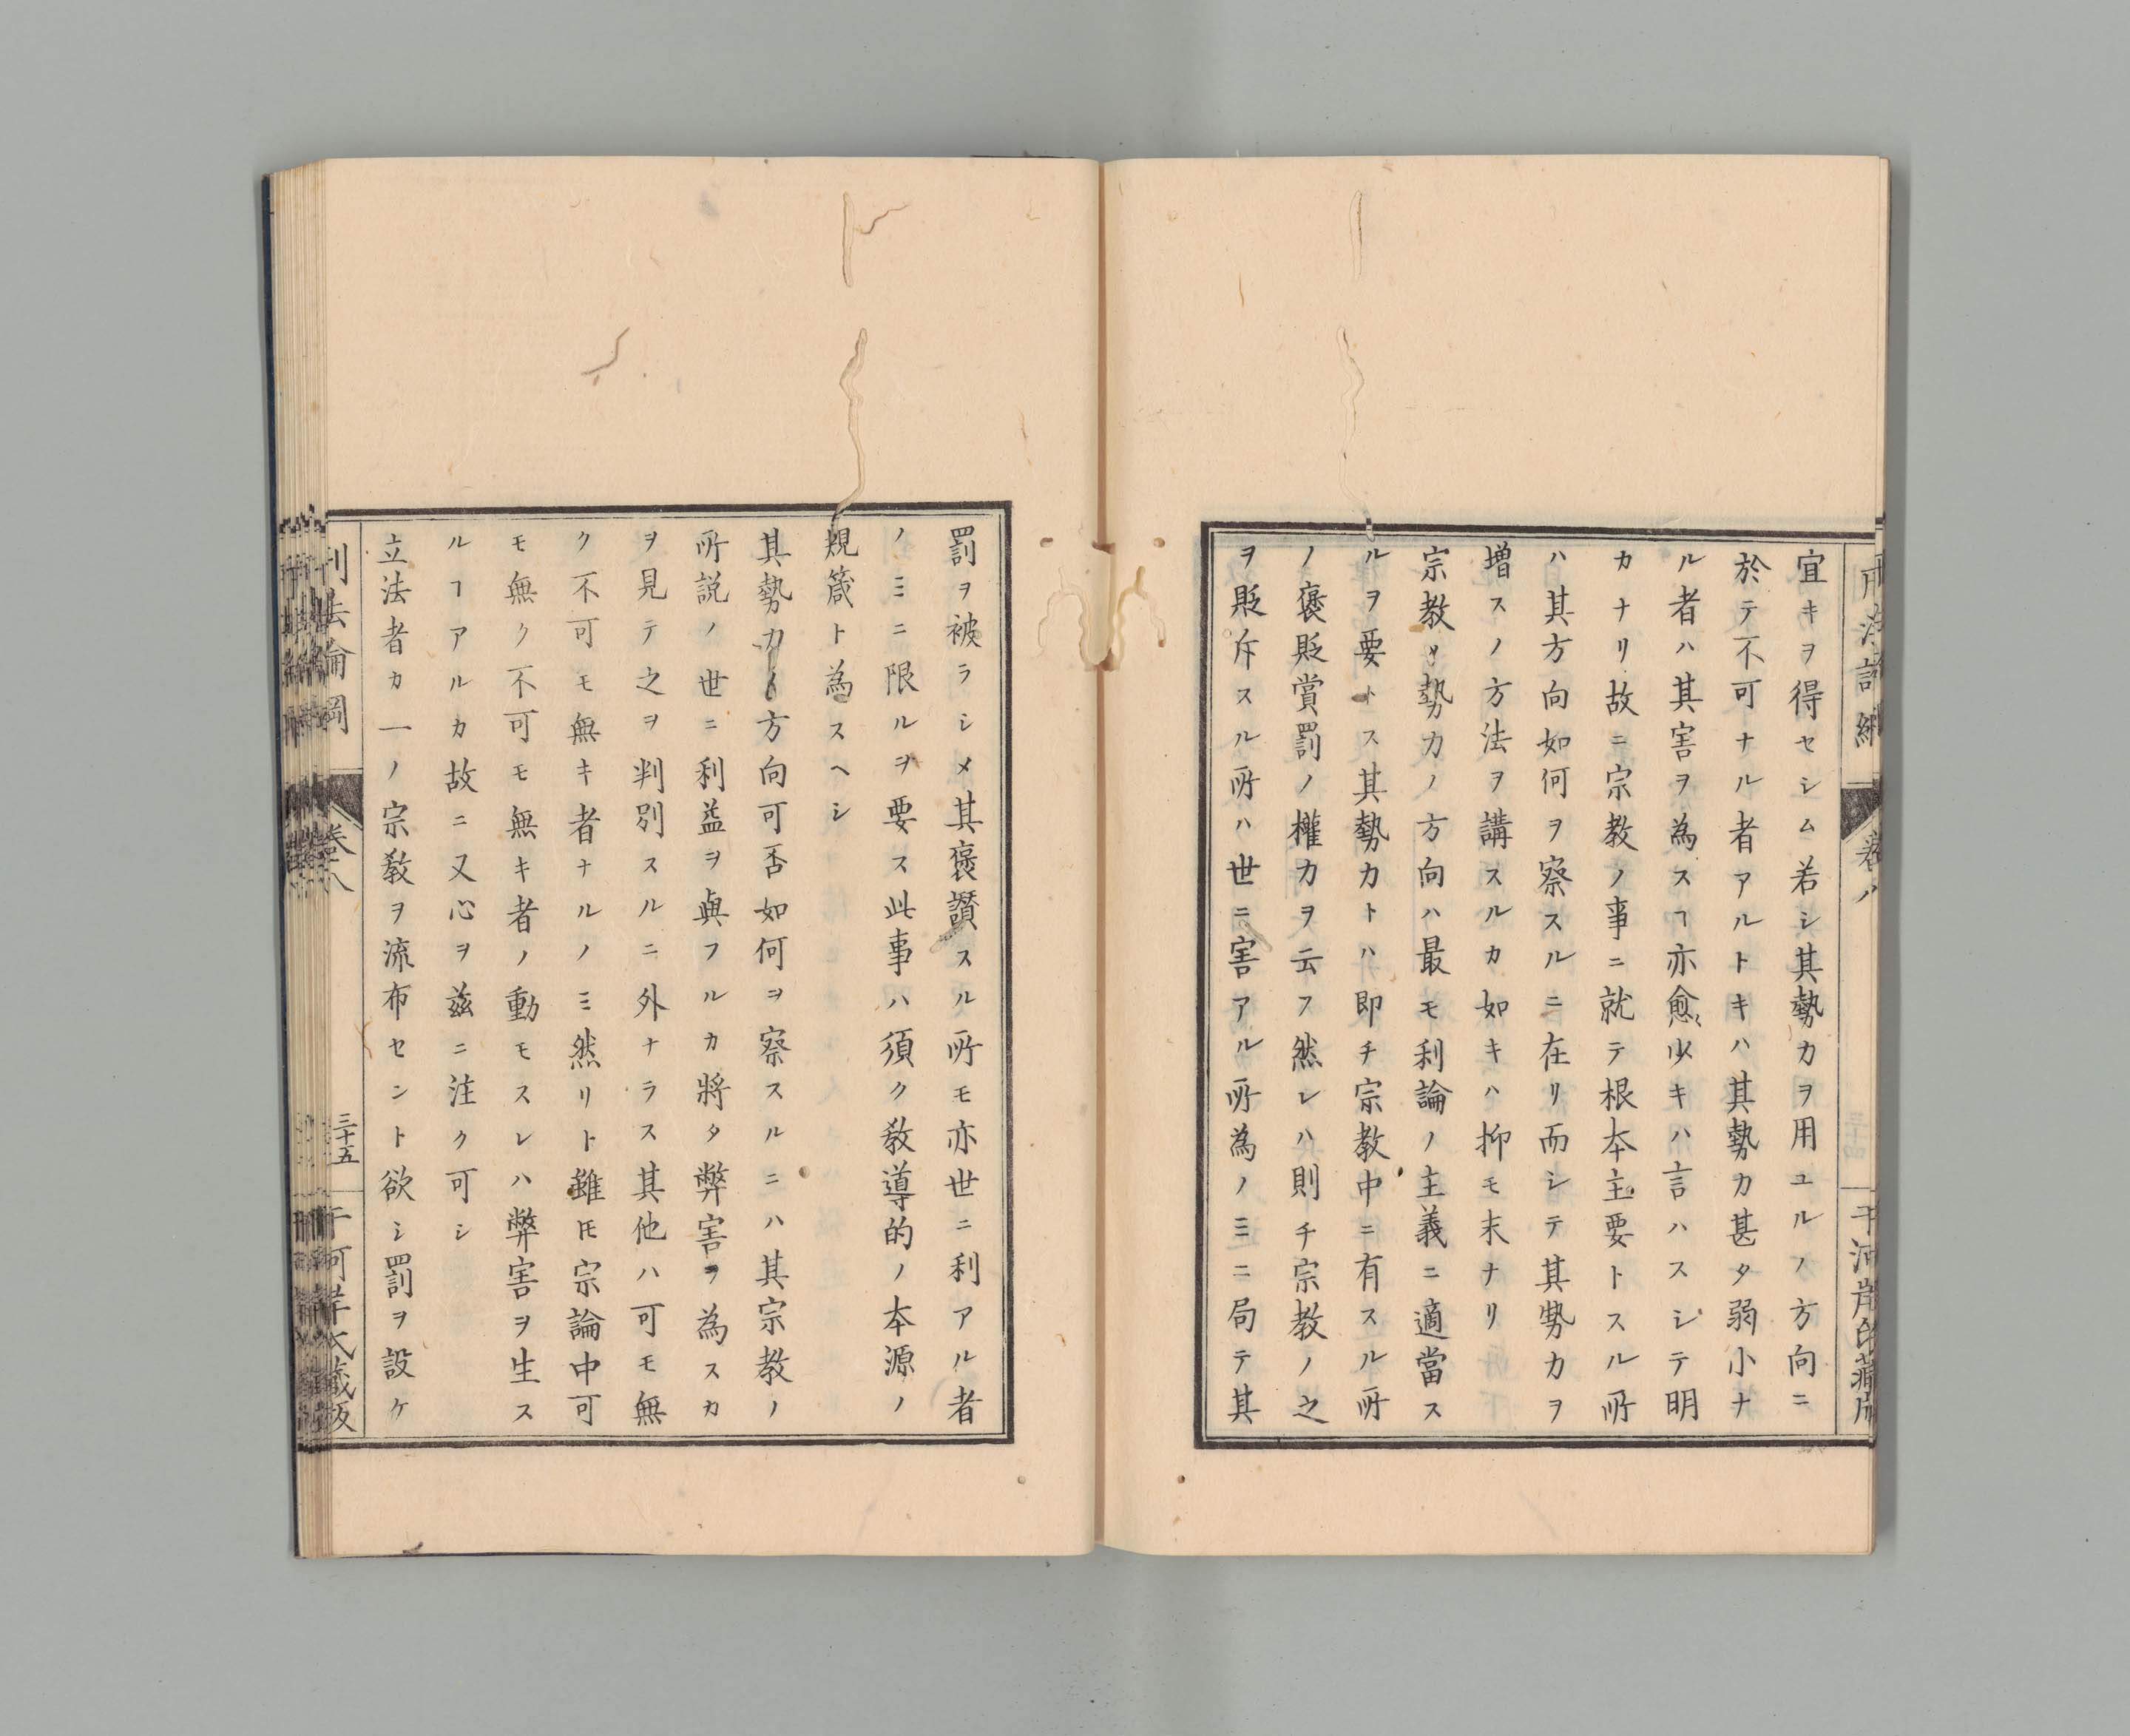 宜キヲ得セシム若シ其勢力ヲ用ユルノ方向ニ
於テ不可ナル者アルトキハ其勢力甚タ弱小ナ
ル者ハ其害ヲ為スヿ亦愈少キハ言ハスシテ明
カナリ故ニ宗教ノ事ニ就テ根本主要トスル所
ハ其方向如何ヲ察スルニ在リ而シテ其勢力ヲ
増スノ方法ヲ講スルカ如キハ抑モ末ナリ
宗教ノ勢力ノ方向ハ最モ利論ノ主義ニ適當ス
ルヲ要トス其勢力トハ即チ宗教中ニ有スル所
ノ褒貶賞罰ノ權力ヲ云フ然レハ則チ宗教ノ之
ヲ貶斥スル所ハ世ニ害アル所為ノミニ局テ其
罰ヲ被ラシメ其褒讃スル所モ亦世ニ利アル者
ノミニ限ルヲ要ス此事ハ須ク教導的ノ本源ノ
規箴ト為スヘシ
其勢力ノ方向可否如何ヲ察スルニハ其宗教ノ
所説ノ世ニ利益ヲ與フルカ將タ弊害ヲ為スカ
ヲ見テ之ヲ判別スルニ外ナラス其他ハ可モ無
ク不可モ無キ者ナルノミ然リト雖𪜈宗論中可
モ無ク不可モ無キ者ノ動モスレハ弊害ヲ生ス
ルヿアルカ故ニ又心ヲ茲ニ注ク可シ
立法者カ一ノ宗教ヲ流布セント欲シ罰ヲ設ケ
刑法論綱 卷八 三十五 干河岸氏藏版